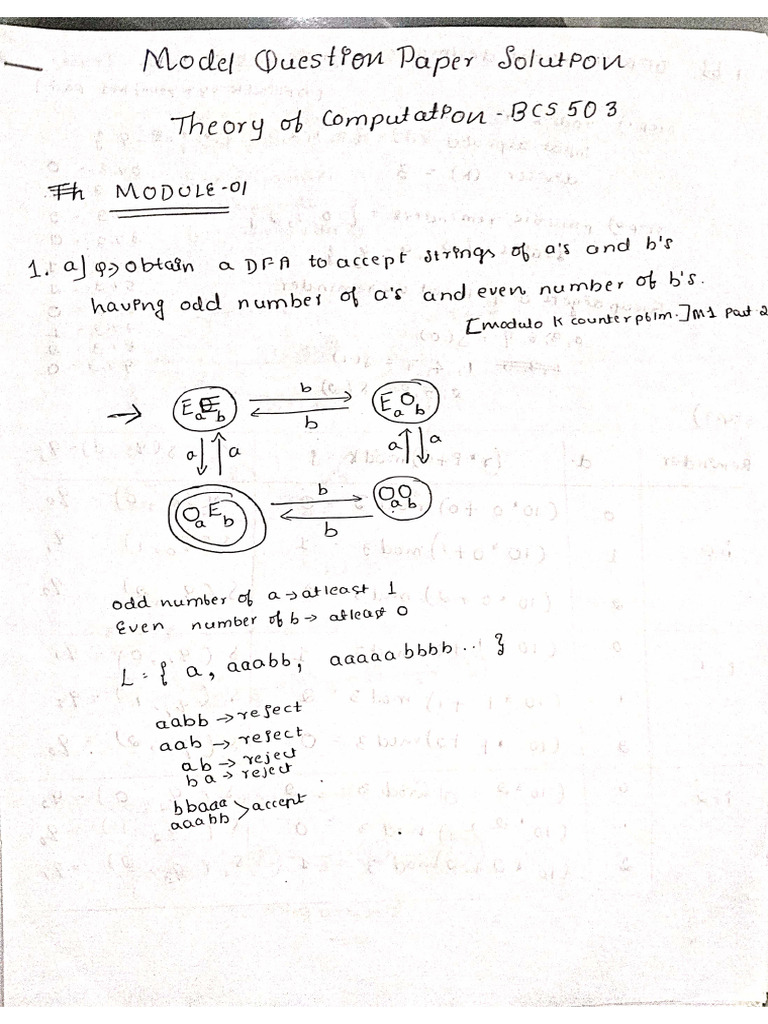 Model Question Paper Solution
Theory of Computation - BCS 503
Th MODULE-01
1. a] i) obtain a DFA to accept strings of a's and b's
having odd number of a's and even number of b's.
[modulo K counter pblm.] M1 Part 2
EaEb b EaOb
b
a a a a
OaEb b OaOb
b
odd number of a → atleast 1
Even number of b → atleast 0
L = { a, aaabb, aaaaabbbb.. }
aabb → reject
aab → reject
ab → reject
ba → reject
bbaaa > accept
aaabb